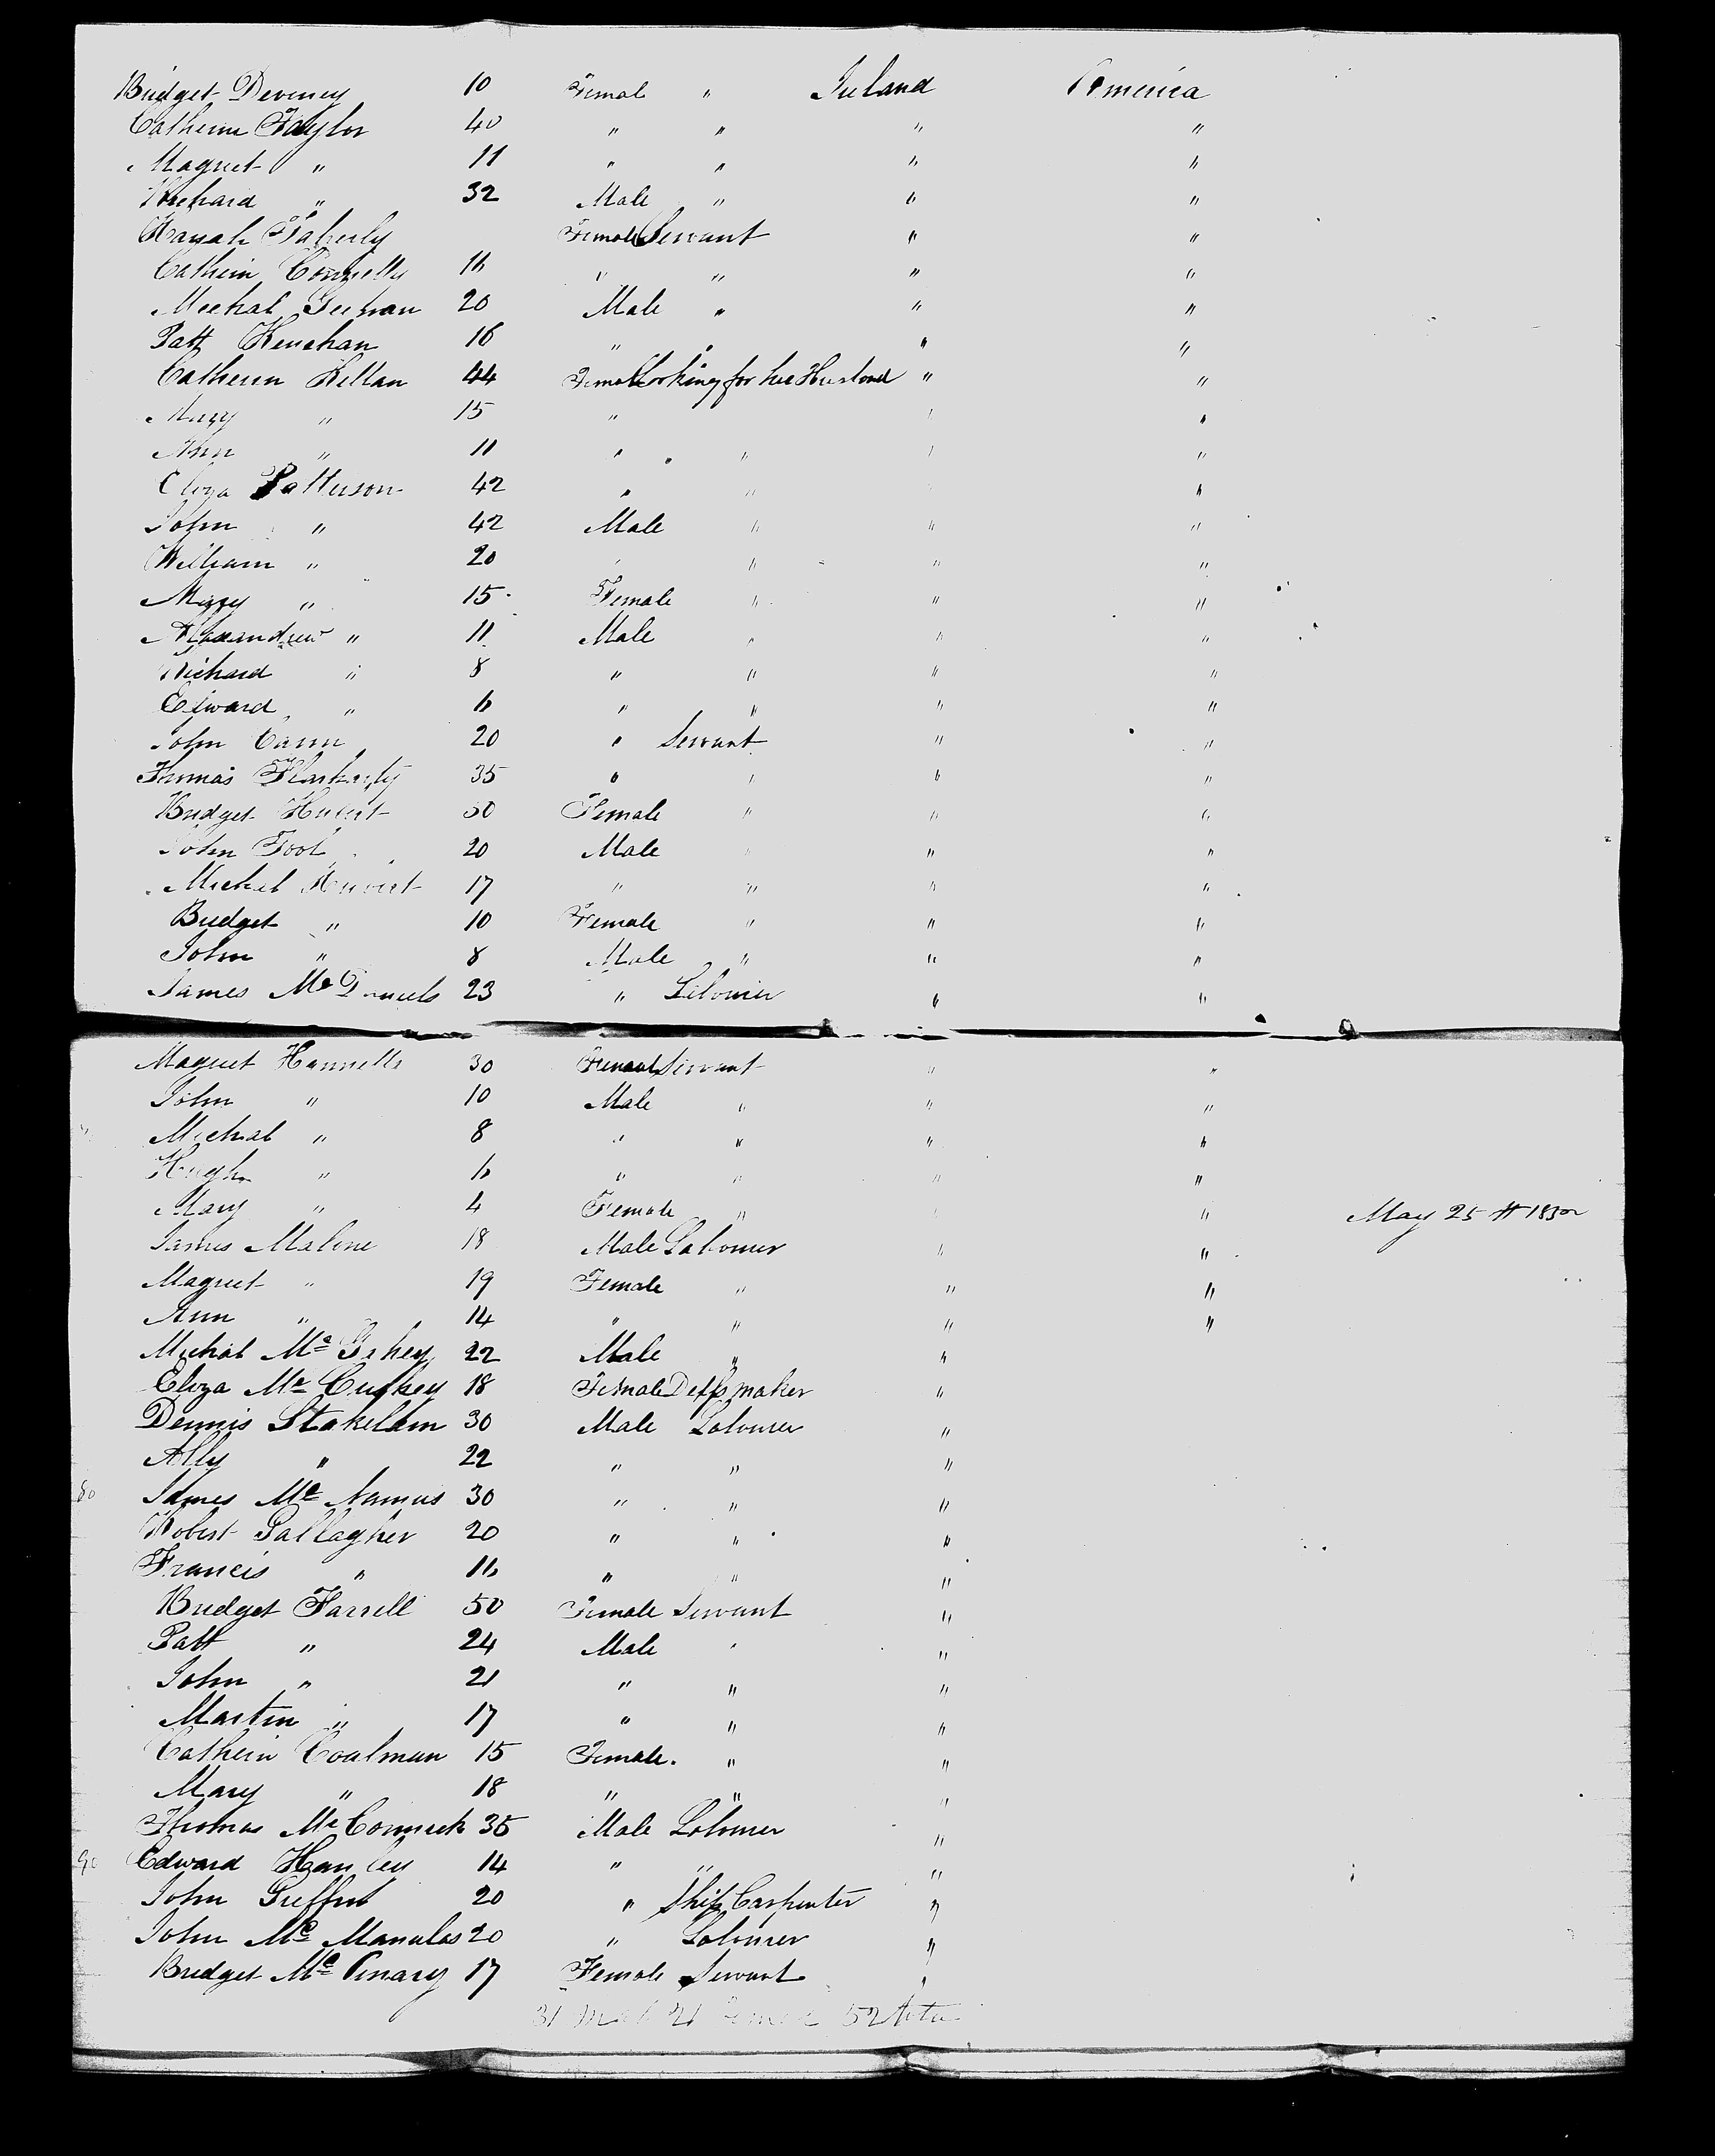 Bridget Deveney 10 Femal " Ireland America
Catherin Taylor 40 " " " "
Magret " 11 " " " "
Richard " 32 Male " " "
Female Servant " "
Cathein Connelly 16 " " " "
Mechal 20 Male " " "
Patt Henehan 16 " " " "
Catherin Killan 44 Femal Looking for her Husband " "
Mary " 15 " " "
Ann " 11 " " " "
Eliza Patterson 42 " " "
John " 42 Male " " "
William " 20 " " " "
" 15 Female " " "
Alaxandrew " 11 Male " " "
Richard " 8 " " " "
Edward " 6 " " " "
John 20 " Servant " "
Thomas Flarherty 35 " " " "
Bridget 30 Female " " "
John Tool 20 Male " " "
Michel 17 " " " "
Bridget " 10 Female " " "
John " 8 Male " " "
James Mc Daniels 23 " Labourer " "
Magret 30 Femal Servant " "
John " 10 Male " " "
Michal " 8 " " " "
Hugh " 6 " " " "
Mary " 4 Female " " " May 25th 1832
James Malone 18 Male Labourer " "
Magret " 19 Female " " "
Ann " 14 " " " "
Michal Mc 22 Male " "
Eliza Mc 18 Female Dressmaker "
Dennis Stakelam 30 Male Labourer "
Ally " 22 " " "
80 James Mc Namus 30 " " "
Robert Gallagher 20 " " "
Francis " 16 " " "
Bridget Farrell 50 Female Servant "
Patt " 24 Male " "
John " 21 " " "
Martin " 17 " " "
Cathein Coalman 15 Female. " "
Mary " 18 " " "
Thomas Mc Cormick 35 Male Labourer "
90 Edward Hanley 14 " " "
John Griffin 20 " Ship Carpenter "
John Mc Manulas 20 " Labourer "
Bridget Mc 17 Female Servant "
31 Male 21 Female 52 total